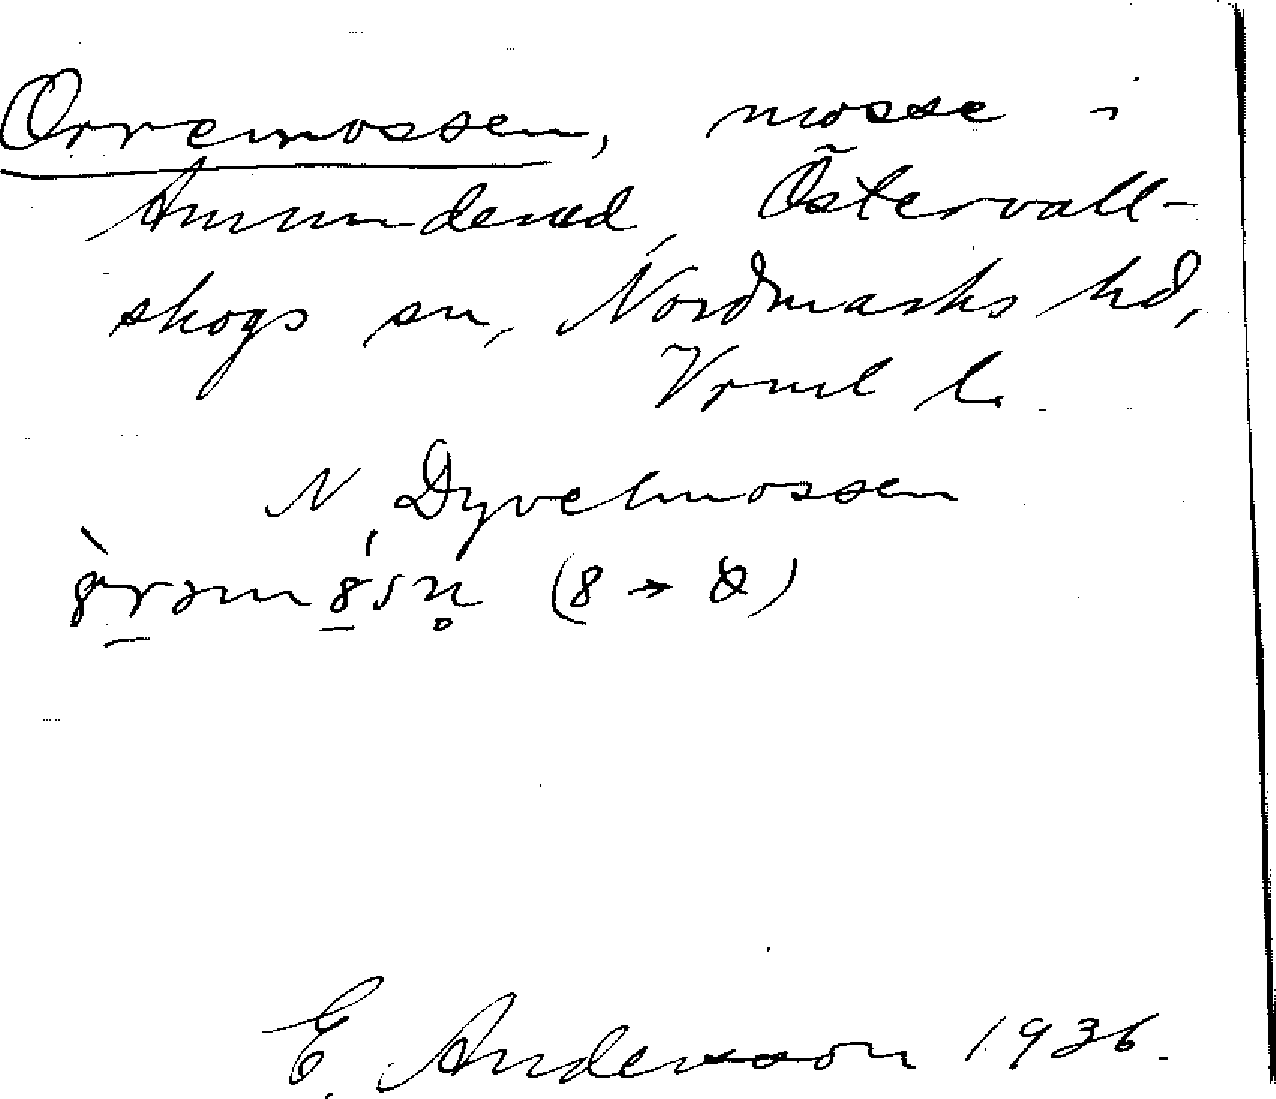 Orremossen, mosse i
Amunderud, Östervall-
skogs sn, Nordmarks hd,
Vrml l.
N. Dyvelmossen
(8 → &)
E. Andersson 1936.